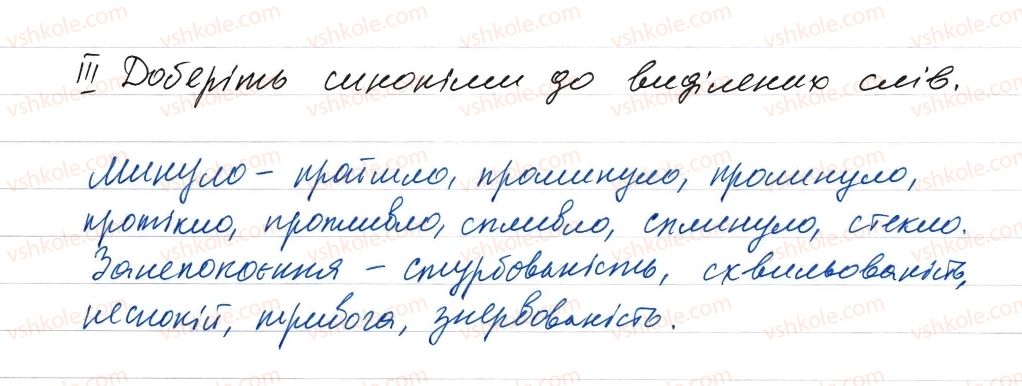 III Доберіть синоніми до виділених слів.
Минуло – пройшло, проминуло, проминуло,
протікло, пропливло, спливло, сплинуло, стекло.
Занепокоєння – стурбованість, схвильованість,
неспокій, тривога, знервованість.